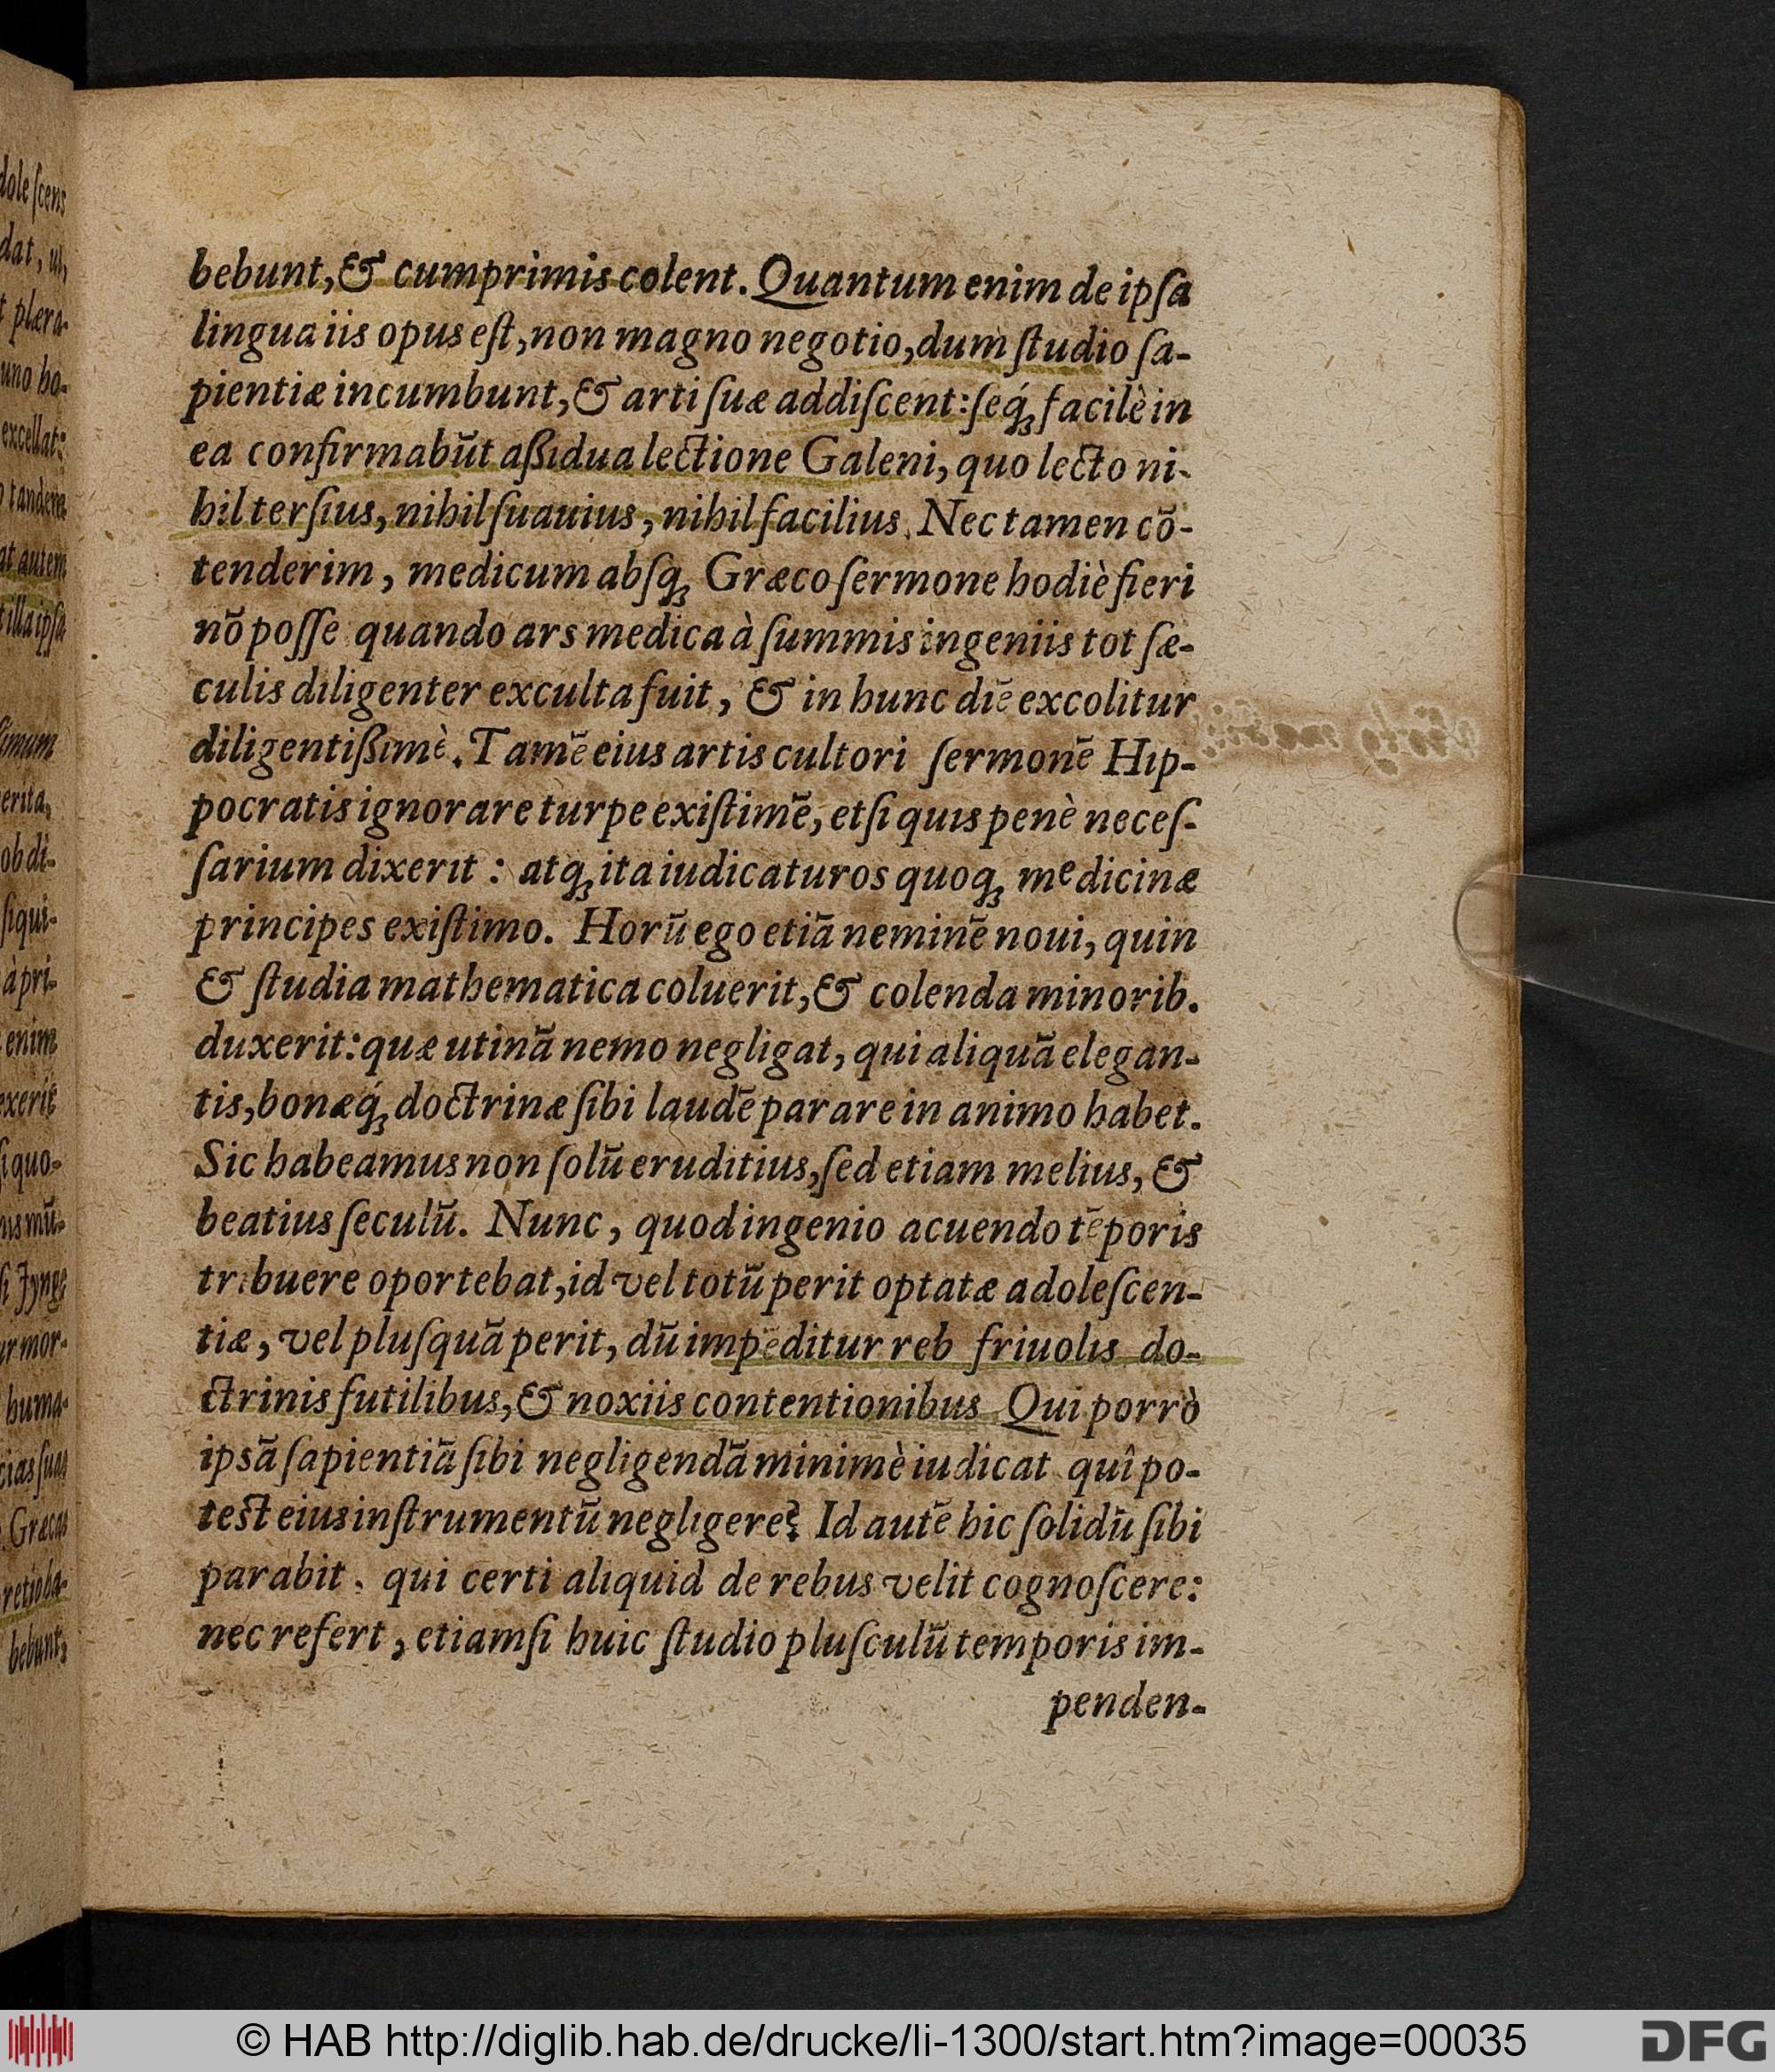 bebunt, & cumprimis colent. Quantum enim de ipſa
lingua iis opus eſt, non magno negotio, dum ſtudio ſa-
pientiæ incumbunt, & arti ſuæ addiſcent: ſeq́ꝫ facilè in
ea confirmabũt aßidua lectione Galeni, quo lecto ni-
hil terſius, nihil ſuauius, nihil facilius. Nec tamen cõ-
tenderim, medicum abſqꝫ Græco ſermone hodiè fieri
nõ poſſe quando ars medica à ſummis ingeniis tot ſæ-
culis diligenter exculta fuit, & in hunc diẽ excolitur
diligentißimè. Tamẽ eius artis cultori ſermonẽ Hip-
pocratis ignorare turpe exiſtimẽ, etſi quis penè neceſ-
ſarium dixerit: atqꝫ ita iudicaturos quoqꝫ medicinæ
principes exiſtimo. Horũ ego etiã neminẽ noui, quin
& ſtudia mathematica coluerit, & colenda minorib.
duxerit: quæ utinã nemo negligat, qui aliquã elegan-
tis, bonæq́ꝫ doctrinæ ſibi laudẽ parare in animo habet.
Sic habeamus non ſolũ eruditius, ſed etiam melius, &
beatius ſeculũ. Nunc, quod ingenio acuendo tẽporis
tribuere oportebat, id vel totũ perit optatæ adoleſcen-
tiæ, vel pluſquã perit, dũ impẽditur reb friuolis do-
ctrinis futilibus, & noxiis contentionibus Qui porrò
ipsã ſapientiã ſibi negligendã minimè iudicat quî po-
test eius inſtrumentũ negligere? Id autẽ hic ſolidũ ſibi
parabit. qui certi aliquid de rebus velit cognoſcere:
nec refert, etiamſi huic ſtudio pluſculũ temporis im-
penden-
© HAB http://diglib.hab.de/drucke/li-1300/start.htm?image=00035
DFG